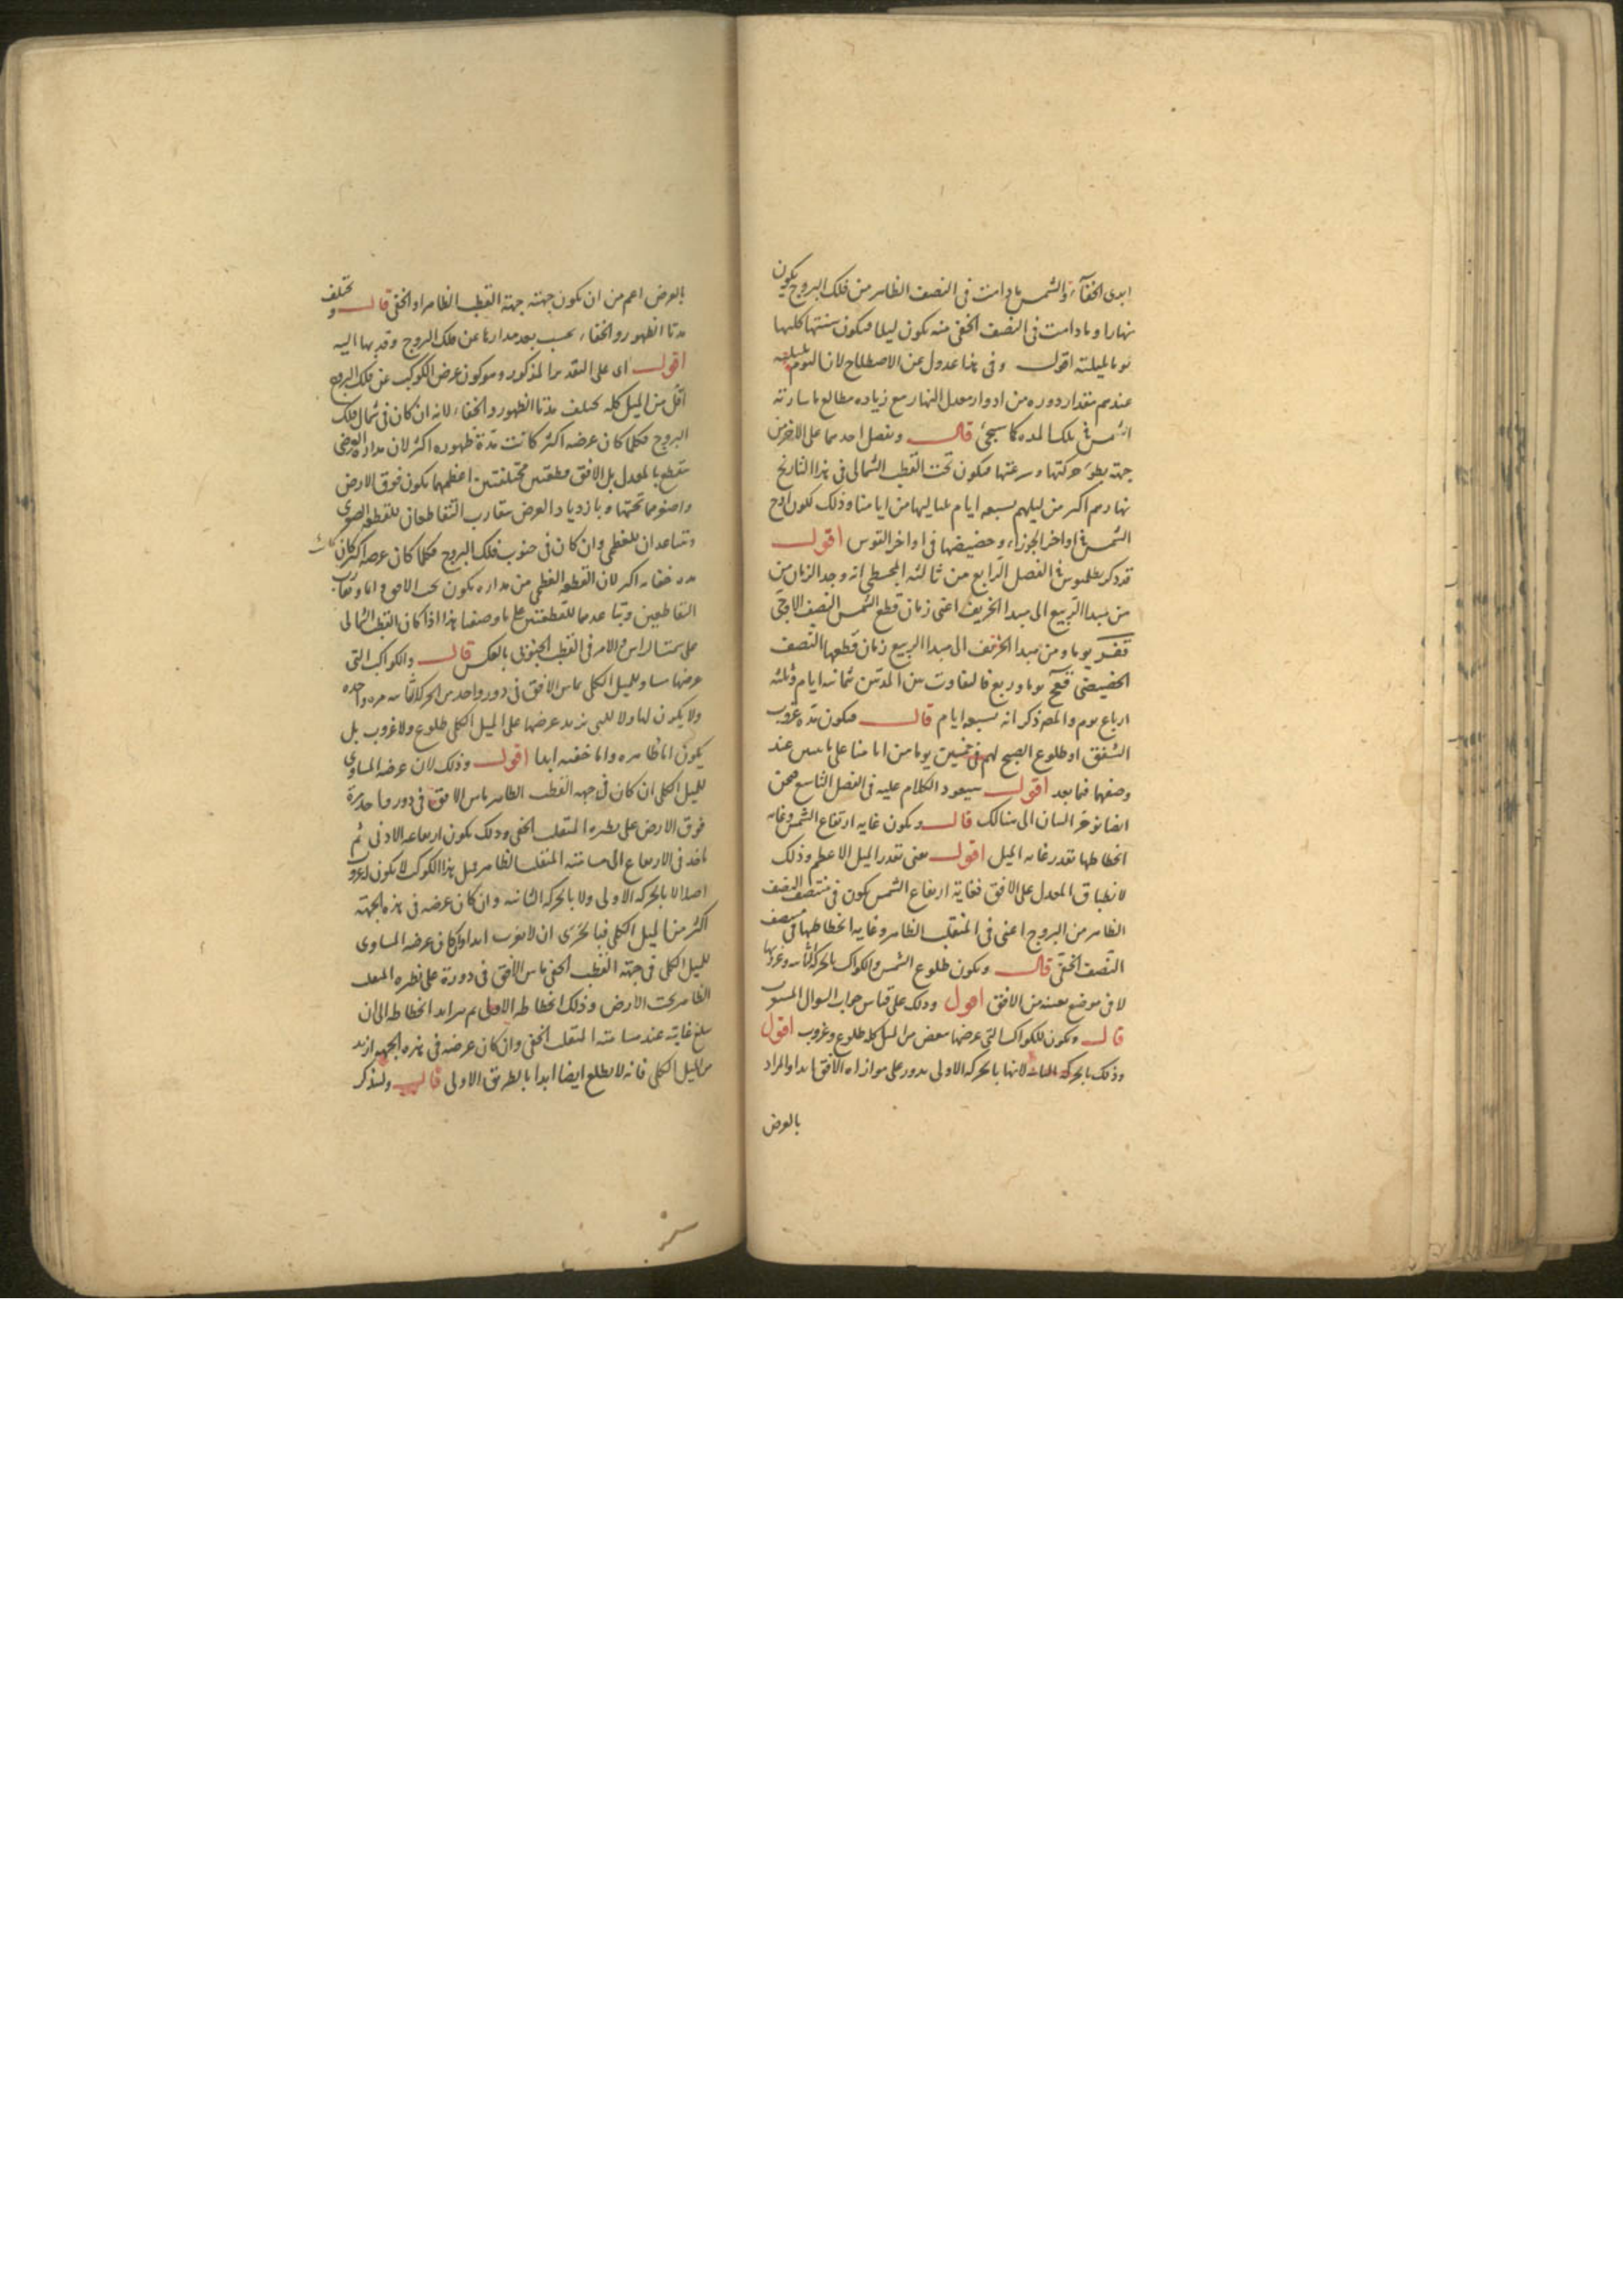 ابدى الخفآء والشمس ما دامت فى النصف الظاهر من فلك البروج يكون
نهارا وما دامت فى النصف الخفى منه يكون ليلا فيكون سنتها كلها
يوما بليلته اقول وفى هذا عدول عن الاصطلاح لان اليوم بليلته
عندهم مقدار دوره من ادوار معدل النهار مع زياده مطالع ما سارته
الشمس فى تلك المده كما سيجئ قال ويفضل احدهما على الاخر من
جهة بطؤ حركتها وسرعتها فيكون تحت القطب الشمالى فى هذا التاريخ
نهارهم اكثر من ليلهم بسبعه ايام بلياليها من ايامنا وذلك لكون اوج
الشمس فى اواخر الجوزاء وحضيضها فى اواخر القوس اقول
قد ذكر بطلميوس فى الفصل الرابع من ثالثه المجسطى انه وجد الزمان من
من مبدا الربيع الى مبدا الخريف اعنى زمان قطع الشمس النصف الاوجى
قفز يوما ومن مبدا الخريف الى مبدا الربيع زمان قطعها النصف
الحضيضى قعح يوما وربع فالتفاوت بين المدتين ثمانيه ايام وثلثه
ارباع يوم والمص ذكر انه بسبعه ايام قال فيكون مدة غروب
الشفق او طلوع الصبح لهم فى خمسين يوما من ايامنا على ما يتبين عند
وصفهما فيما بعد اقول سيعود الكلام عليه فى الفصل التاسع فنحن
ايضا نوخر البيان الى هنالك قال ويكون غايه ارتفاع الشمس وغايه
انحطاطها بقدر غايه الميل اقول يعنى بقدر الميل الاعظم وذلك
لانطباق المعدل على الافق فغاية ارتفاع الشمس يكون فى منتصف النصف
الظاهر من البروج اعنى فى المنقلب الظاهر وغايه انحطاطها فى منتصف
النصف الخفى قال ويكون طلوع الشمس والكواكب بالحركه الثانيه وغروبها
لا فى موضع بعينه من الافق اقول وذلك على قياس جواب السوال المنسوب
قال ويكون للكواكب التى عرضها ينقص من الميل كله طلوع وغروب اقول
وذلك بالحركه الثانيه لانها بالحركه الاولى يدور على موازاه الافق ابدا والمراد
بالعرض
بالعرض اعم من ان يكون جهته جهة القطب الظاهر او الخفى قال ويختلف
مدتا الظهور والخفاء بحسب بعد مداراتها عن فلك البروج وقربها اليه
اقول اى على التقدير المذكور وهو كون عرض الكوكب عن فلك البروج
اقل من الميل كله يختلف مدتا الظهور والخفاء لانه ان كان فى شمال فلك
البروج فكلما كان عرضه اكثر كانت مدة ظهوره اكثر لان مداره العرضى
يتقطع بالمعدل بل الافق بقطعتين مختلفتين اعظمهما يكون فوق الارض
واصغرهما تحتها وبازدياد العرض يتقارب التقاطعان للقطعه الصغرى
ويتباعدان للعظمى وان كان فى جنوب فلك البروج فكلما كان عرضه اكثر كان كانت
مده خفائه اكثر لان القطعه العظمى من مداره يكون تحت الافق واما وتقارب
التقاطعين وتباعدهما للقطعتين على ما وصفنا هذا اذا كان القطب الشمالى
على سمت الراس والامر فى القطب الجنوبى بالعكس قال والكواكب التى
عرضها مساو للميل الكلى يماس الافق فى دور واحد من الحركه الثانيه مره واحده
ولا يكون لها ولا للتى يزيد عرضها على الميل الكلى طلوع ولا غروب بل
يكون اما ظاهره واما خفيه ابدا اقول وذلك لان عرضه المساوى
للميل الكلى ان كان فى جهه القطب الظاهر ماس الافق فى دوره واحدة
فوق الارض على نظيره المنقلب الخفى وذلك يكون ارتفاعه الادنى ثم
ياخذ فى الارتفاع الى مسامته المنقلب الظاهر فمثل هذا الكوكب لا يكون له غروب
اصلا لا بالحركه الاولى ولا بالحركه الثانيه وان كان عرضه فى هذه الجهة
اكثر من الميل الكلى فبالحرى ان لا يغرب ابدا وان كان عرضه المساوى
للميل الكلى فى جهة القطب الخفى ماس الافق فى دورة على نظيره المنقلب
الظاهر تحت الارض وذلك انحطاطه الاقل ثم يتزايد انحطاطه الى ان
يبلغ غايته عند مسامته المنقلب الخفى وان كان عرضه فى هذه الجهه ازيد
من الميل الكلى فانه لا يطلع ايضا ابدا بالطريق الاولى قال ولنذكر